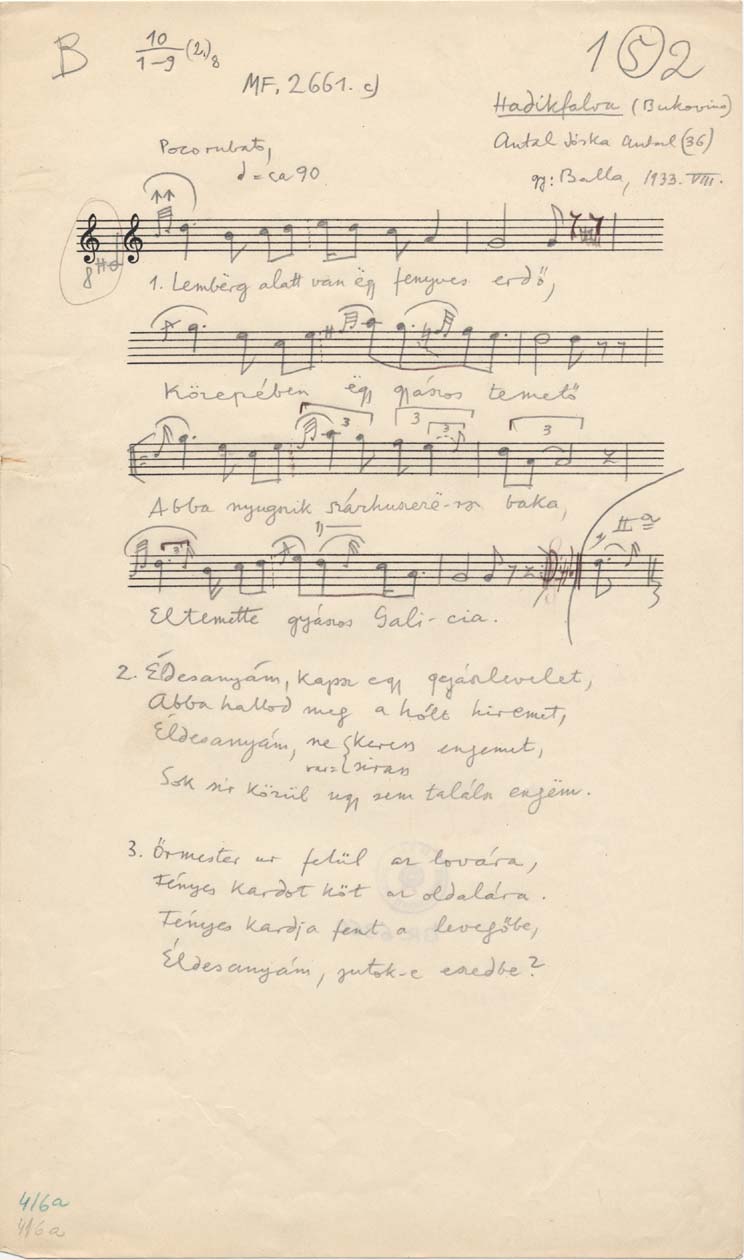 B 10/1-9 (2.)8
1 5 2
MF. 2661. c)
Hadikfalva (Bukovina)
Antal Jóska Antal (36)
gy: Balla, 1933. VIII.
Poco rubato,
= ca 90
8
1. Lembërg alatt van ëgy fenyves erdő,
Közepében ëgy gyászos temető
3 3 3 3
Abba nyugszik szárhuszerë-sz baka,
1)
3
IIa
Eltemette gyászos Gali-cia.
2. Édesanyám, kapsz egy gyászlevelet,
Abba hallod meg a hólt hiremet,
Éldesanyám, ne keress engemet,
var: sirass
Sok sír közül ugy sem találsz engëm.
3. Őrmester ur felül az lovára,
Fényes kardot köt az oldalára.
Fényes kardja fent a levegőbe,
Éldesanyám, jutok-e eszedbe?
4/6a
4/6a